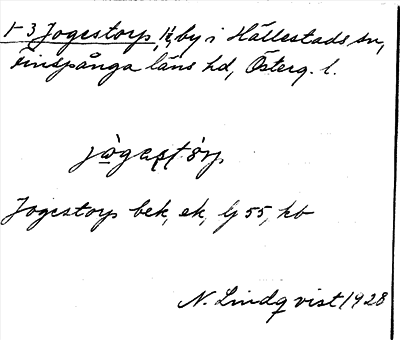 1-3 Jogestorp, by i Hällestads sn,
Finspånga läns hd, Österg. l.
Jogestorp bek, ek, lj 55, hb
N. Lindqvist 1928